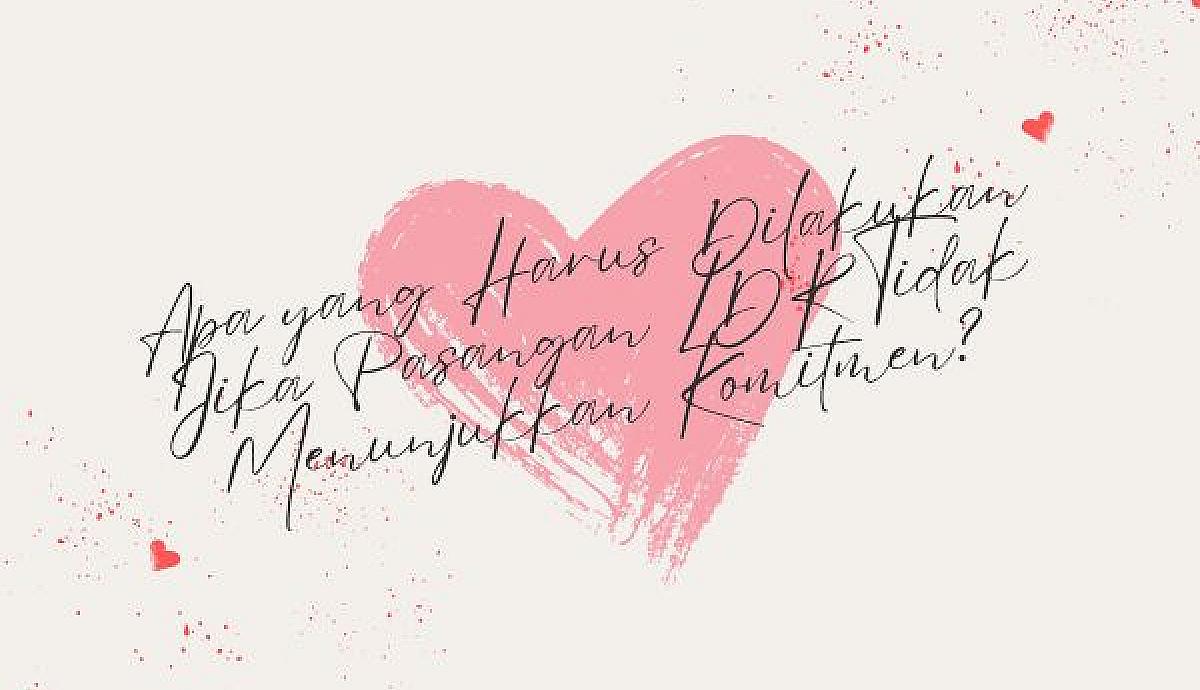 Apa yang Harus Dilakukan
Jika Pasangan LDR Tidak
Menunjukkan Komitmen?